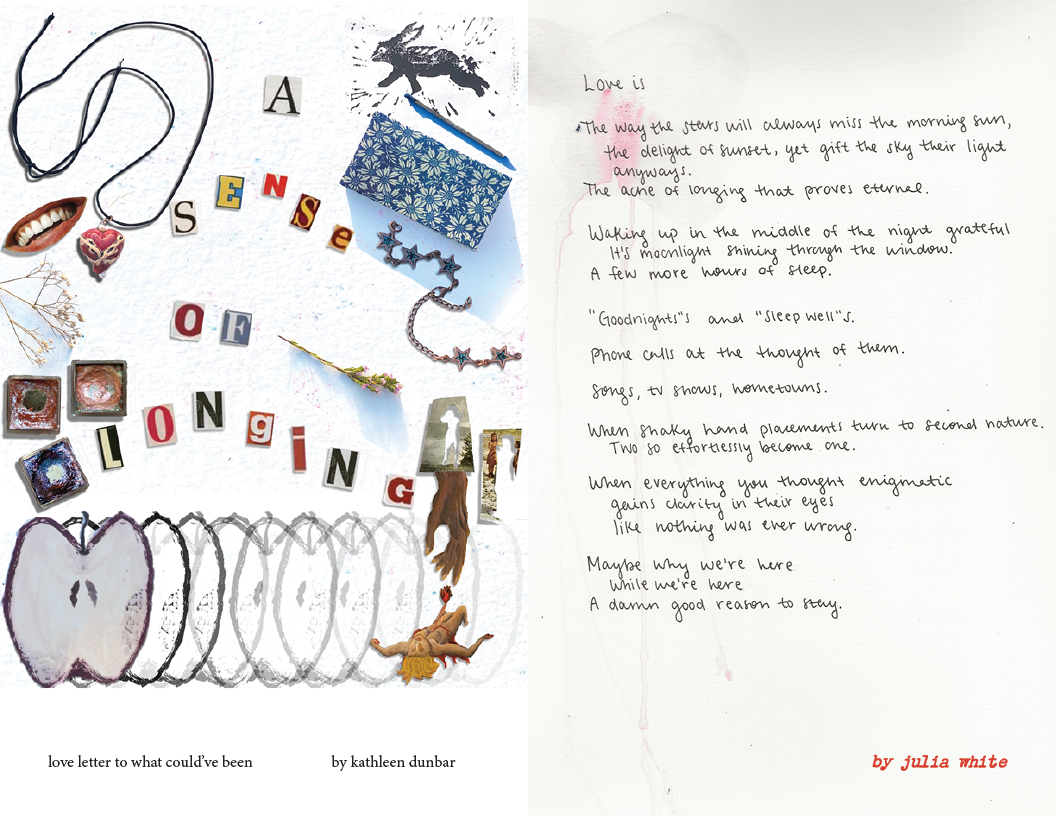 A
SENSe
OF
LONgiNG
love letter to what could've been
by kathleen dunbar
Love is
The way the stars will always miss the morning sun,
the delight of sunset, yet gift the sky their light
anyways.
The ache of longing that proves eternal.
Waking up in the middle of the night grateful
It's moonlight shining through the window.
A few more hours of sleep.
"Goodnights"s and "Sleep well"s.
Phone calls at the thought of them.
Songs, tv shows, hometowns.
When shaky hand placements turn to second nature.
Two so effortlessly become one.
When everything you thought enigmatic
gains clarity in their eyes
like nothing was ever wrong.
Maybe why we're here
While we're here
A damn good reason to stay.
by julia white